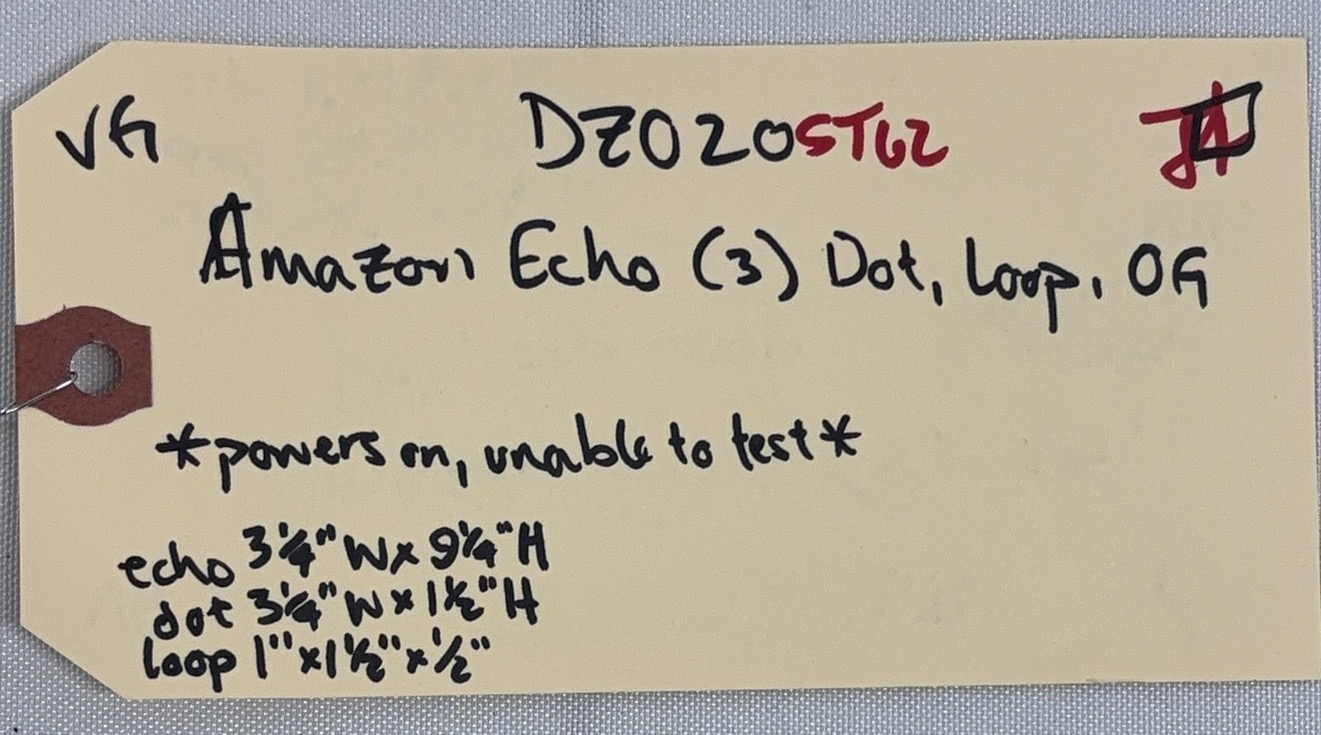 VG DZ020ST62
Amazon Echo (3) Dot, Loop, OG
*powers on, unable to test*
echo 3 1/4" W x 9 1/4" H
dot 3 1/4" W x 1 1/2" H
loop 1" x 1 1/2" x 1/2"